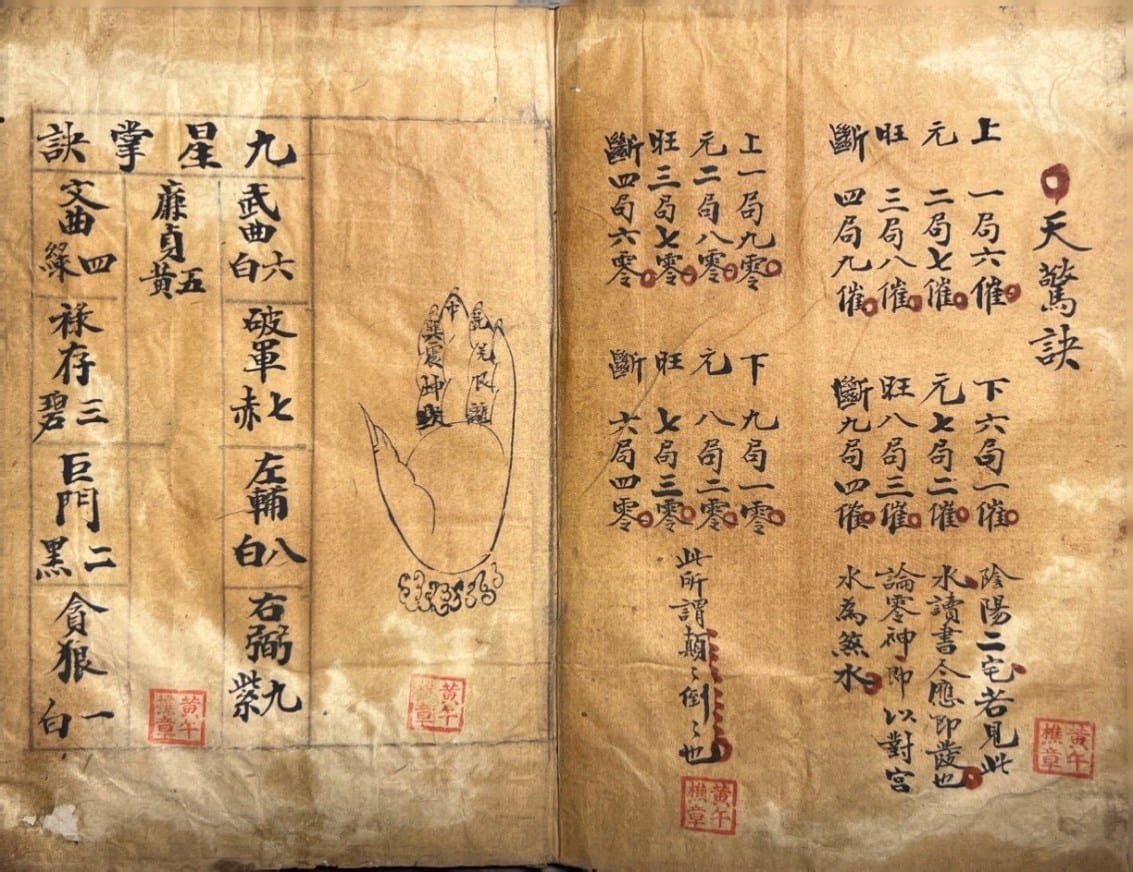 天驚訣
上一局六催
元二局七催
旺三局八催
斷四局九催
下六局一催
元七局二催
旺八局三催
斷九局四催
陰陽二宅若見此
水讀書應即發也
論零神即以對宮
水為煞水
黃午樵章
上一局九零
元二局八零
旺三局七零
斷四局六零
下九局一零
元八局二零
旺七局三零
斷六局四零
此所謂顛〻倒〻也
黃午樵章
兌艮離
中
巽震坤
黃午樵章
九星掌訣
武曲六白
破軍七赤
左輔八白
右弼九紫
廉貞五黃
文曲四綠
祿存三碧
巨門二黑
貪狼一白
黃午樵章